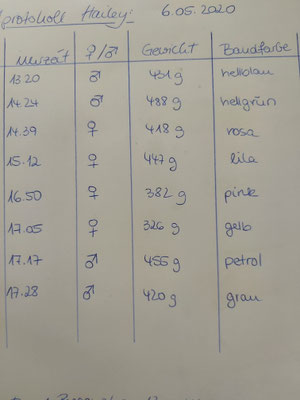 protokoll Hailey: 6.05.2020
Uhrzeit ♀/♂ Gewicht Bandfarbe
13.20 ♂ 431 g hellblau
14.24 ♂ 488 g hellgrün
14.39 ♀ 418 g rosa
15.12 ♀ 447 g lila
16.50 ♀ 382 g pink
17.05 ♀ 326 g gelb
17.17 ♂ 455 g petrol
17.28 ♂ 420 g grau